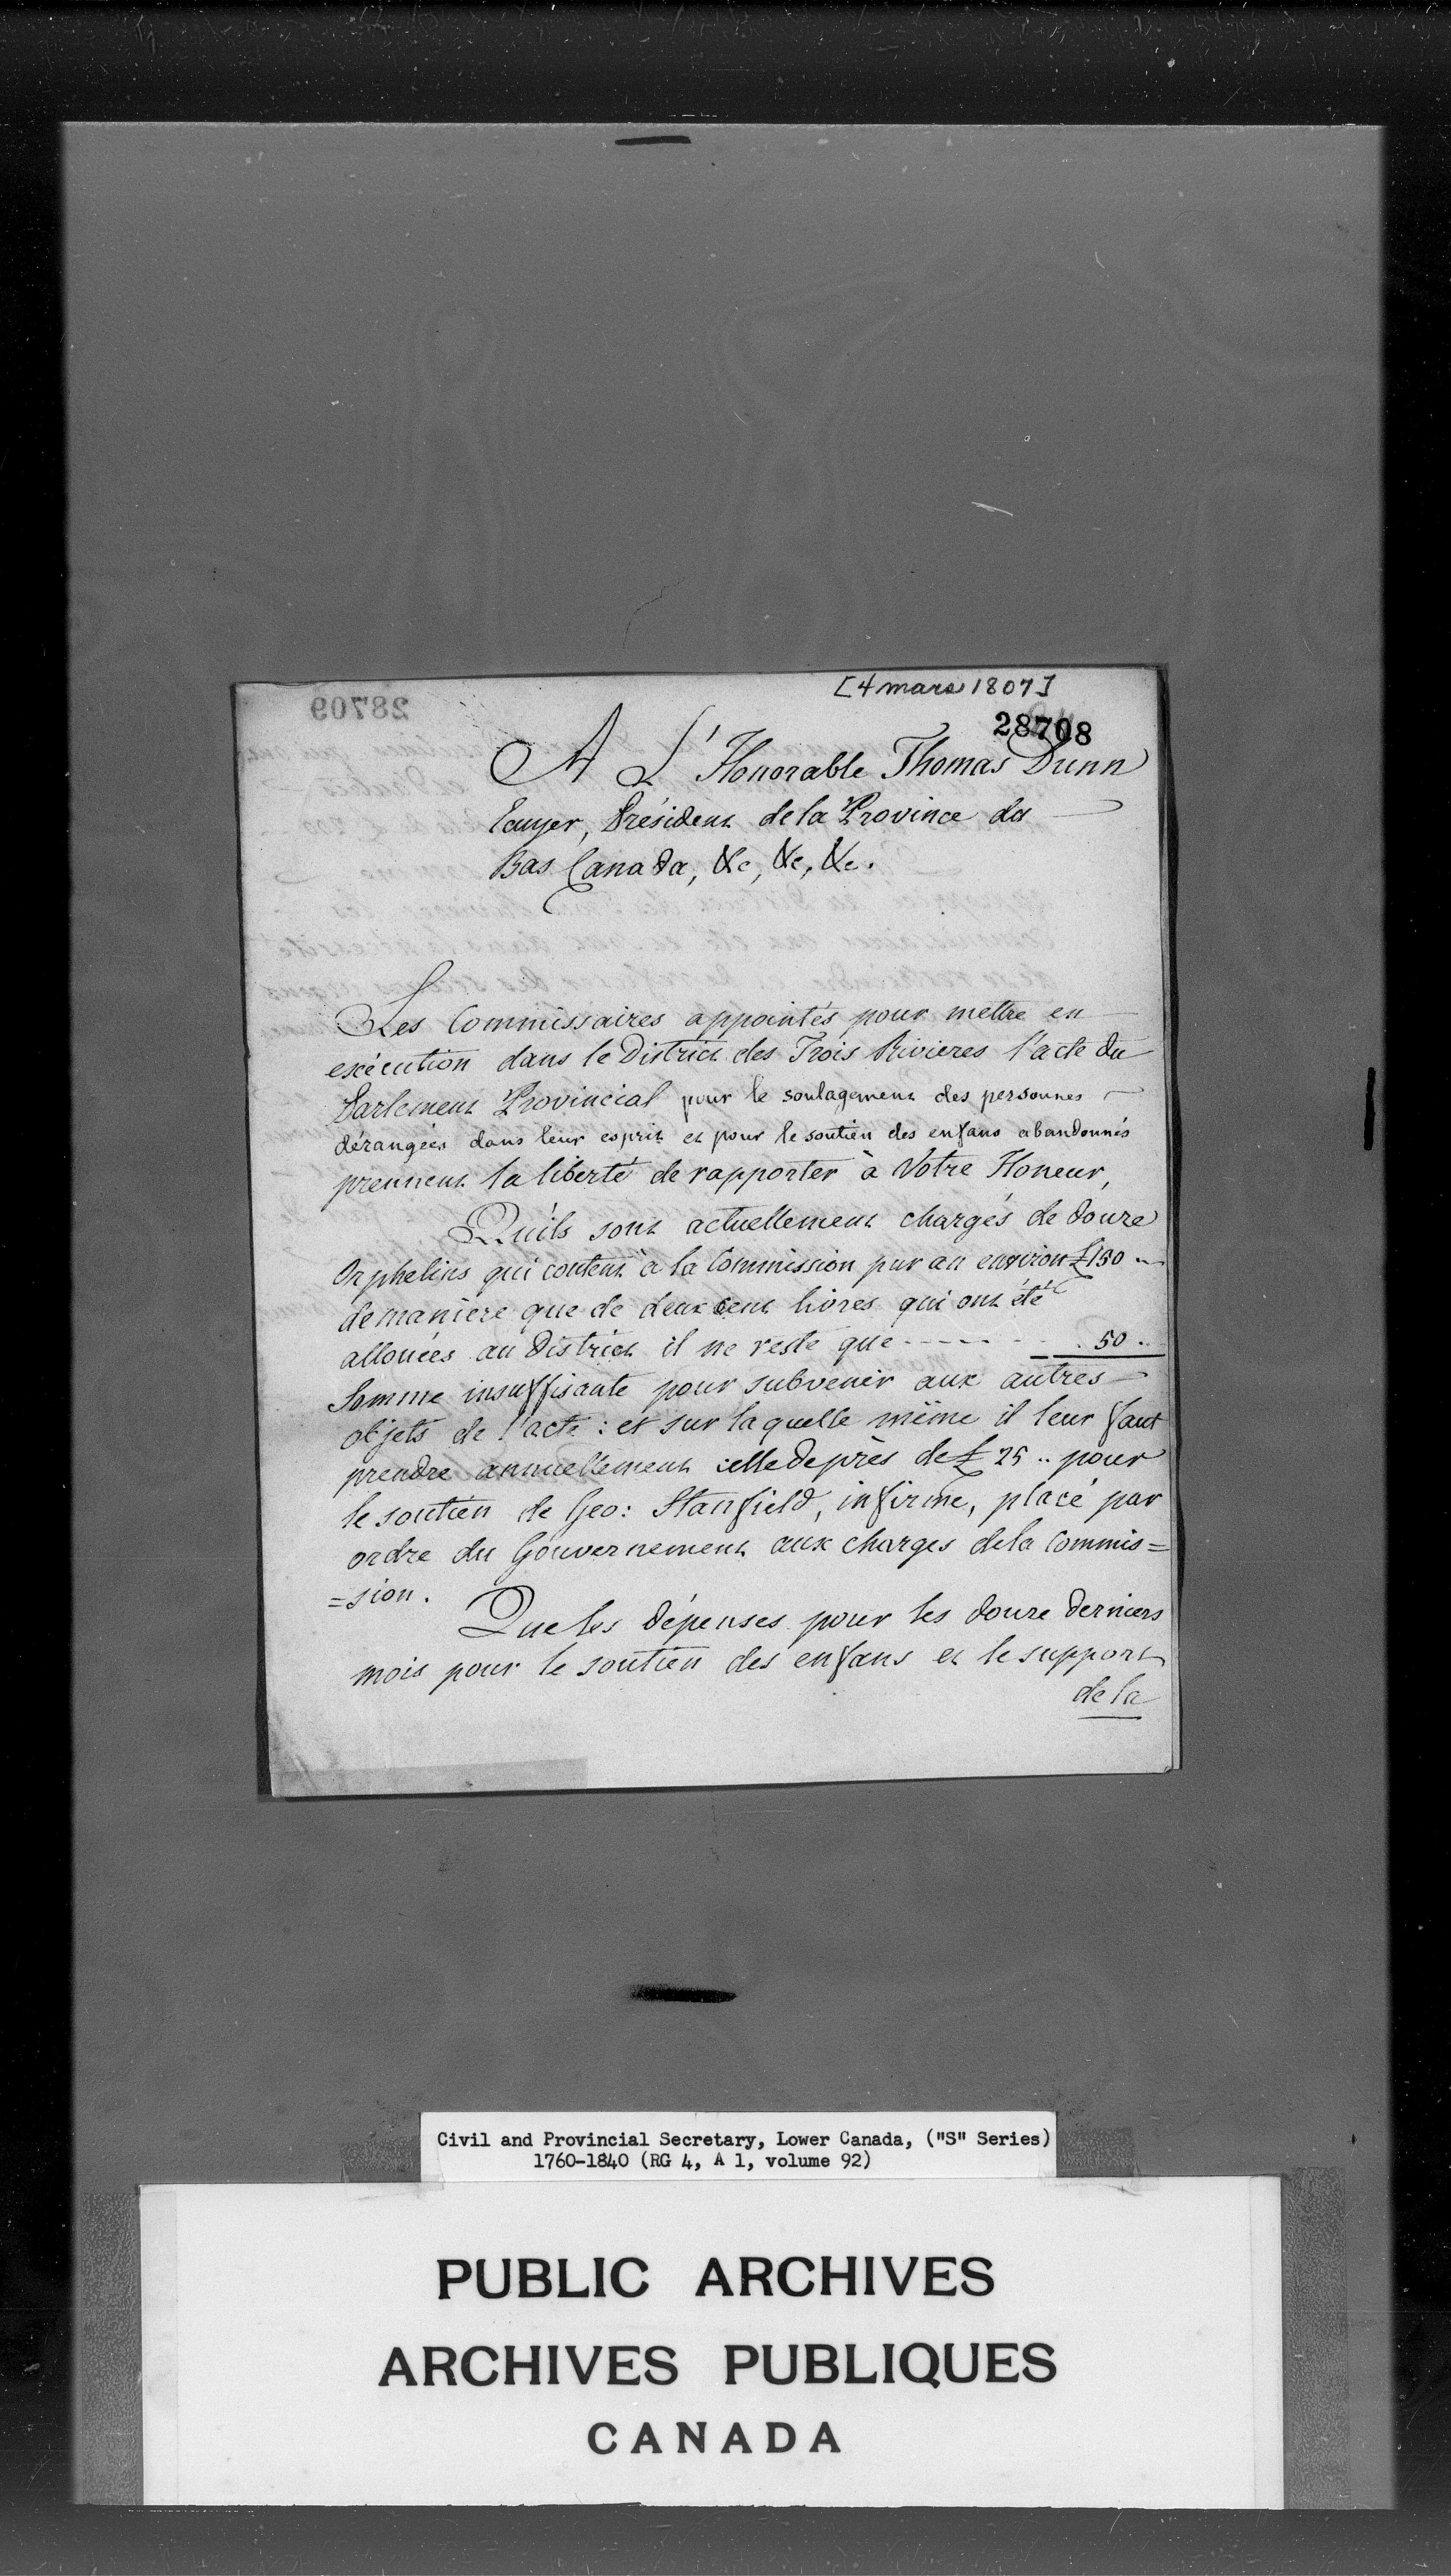 [4 mars 1807]
28709
28708
A L'Honorable Thomas Dunn
Ecuyer, Président de la Province du
Bas Canada, &c, &c, &c.
Les Commissaires appointés pour mettre en
exécution dans le District des Trois Rivieres l'acte du
Parlement Provincial pour le soulagement des personnes
dérangées dans leur esprit et pour le soutien des enfans abandonnés
prennent la liberté de rapporter à Votre Honeur,
Quils sont actuellement chargés de douze
Orphelins qui coutent à la Commission par an environ £150 ..
de maniere que de deux cent livres qui ont été
allouées au District il ne reste que - - - - - 50 ..
Somme insuffisante pour subvenir aux autres
objets de l'acte : et sur laquelle même il leur faut
prendre annuellement celle de près de £ 25 .. pour
le soutien de Geo: Stanfield, infirme, placé par
ordre du Gouvernement aux charges de la Commis=
=sion.
Que les dépenses pour les douze derniers
mois pour le soutien des enfans et le support
de la
Civil and Provincial Secretary, Lower Canada, ("S" Series)
1760-1840 (RG 4, A 1, volume 92)
PUBLIC ARCHIVES
ARCHIVES PUBLIQUES
CANADA